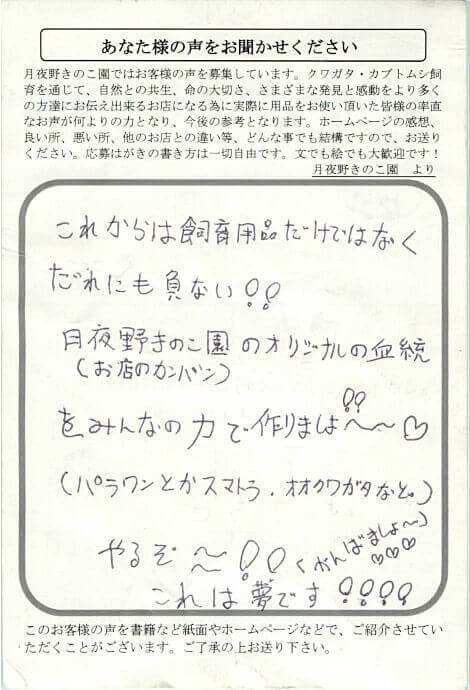 あなた様の声をお聞かせください
月夜野きのこ園ではお客様の声を募集しています。クワガタ・カブトムシ飼
育を通じて、自然との共生、命の大切さ、さまざまな発見と感動をより多く
の方達にお伝え出来るお店になる為に実際に用品をお使い頂いた皆様の率直
なお声が何よりの力となり、今後の参考となります。ホームページの感想、
良い所、悪い所、他のお店との違い等、どんな事でも結構ですので、お送り
ください。応募はがきの書き方は一切自由です。文でも絵でも大歓迎です！
月夜野きのこ園　より
これからは飼育用品だけではなく
だれにも負ない!!
月夜野きのこ園のオリジナルの血統
(お店のカンバン)
をみんなの力で作りましょ!!〜〜♡
(パラワンとかスマトラ．オオクワガタなど。)
やるぞ〜!!(がんばましょ〜)
♡♡♡
これは夢です!!!!
このお客様の声を書籍など紙面やホームページなどで、ご紹介させてい
ただくことがございます。ご了承の上お送り下さい。